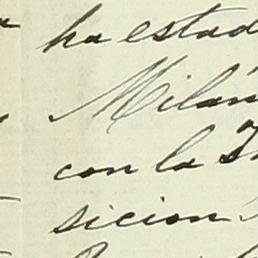 ha estad
Milán
con la
sicion